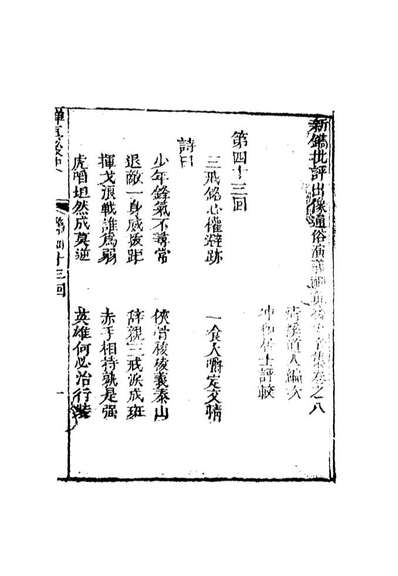 新鐫批評出像通俗演義禪真後史 集卷之八
清溪道人編次
冲和居士評較
第四十三回
三戒銘心權避跡 一食大嚼定交情
詩曰
少年鋒氣不尋常 俠骨稜稜義泰山
退敵一身威 距 辭親三戒淚成班
揮戈浪戰誰為弱 赤手相持孰是强
虎嘯坦然成莫逆 英雄何必治行裝
禪真後史 第四十三回 一